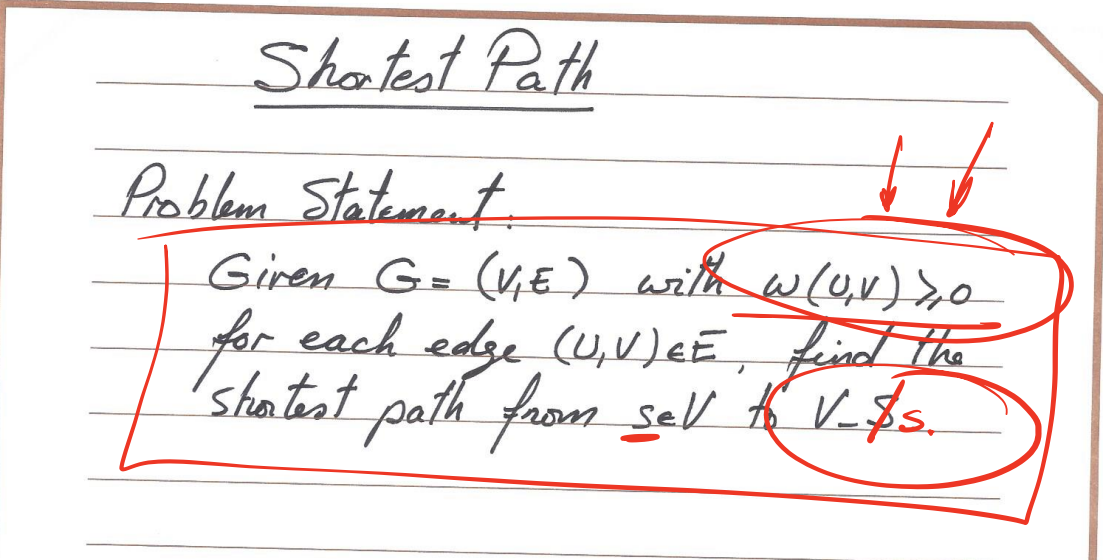 Shortest Path
Problem Statement:
Given G = (V,E) with w(u,v) ≥ 0
for each edge (u,v) ∈ E, find the
shortest path from s ∈ V to V - s.